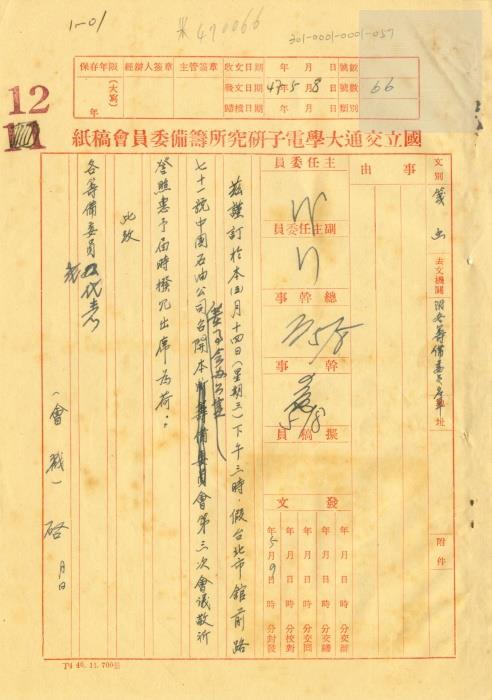 1-01
米490066
301-0001-0001-057
保存年限
(大寫)
年
經辦人簽章
主管簽章
收文日期 年 月 日 號數
發文日期 47年5月8日 號數 66
歸檔日期 年 月 日 類別
12
國立交通大學電子研究所籌備委員會稿紙
文別 箋函
去文機關
地址
附件
事由
主任委員
副主任委員
總幹事
幹事 5/8
撰稿員 5/8
發文
年 月 日 時 分交辦
年 月 日 時 分交繕
年 月 日 時 分交回
年 月 日 時 分校對
年5月9日 時 分封發
茲謹訂於本(五)月十四日(星期三)下午三時,假台北市館前路
七十一號中國石油公司
召開本
會第三次會議敬祈
詧照惠予屆時撥冗出席為荷:
此致
各籌備委員
或代表
(會戳)啓 月 日
T4 46.11.700